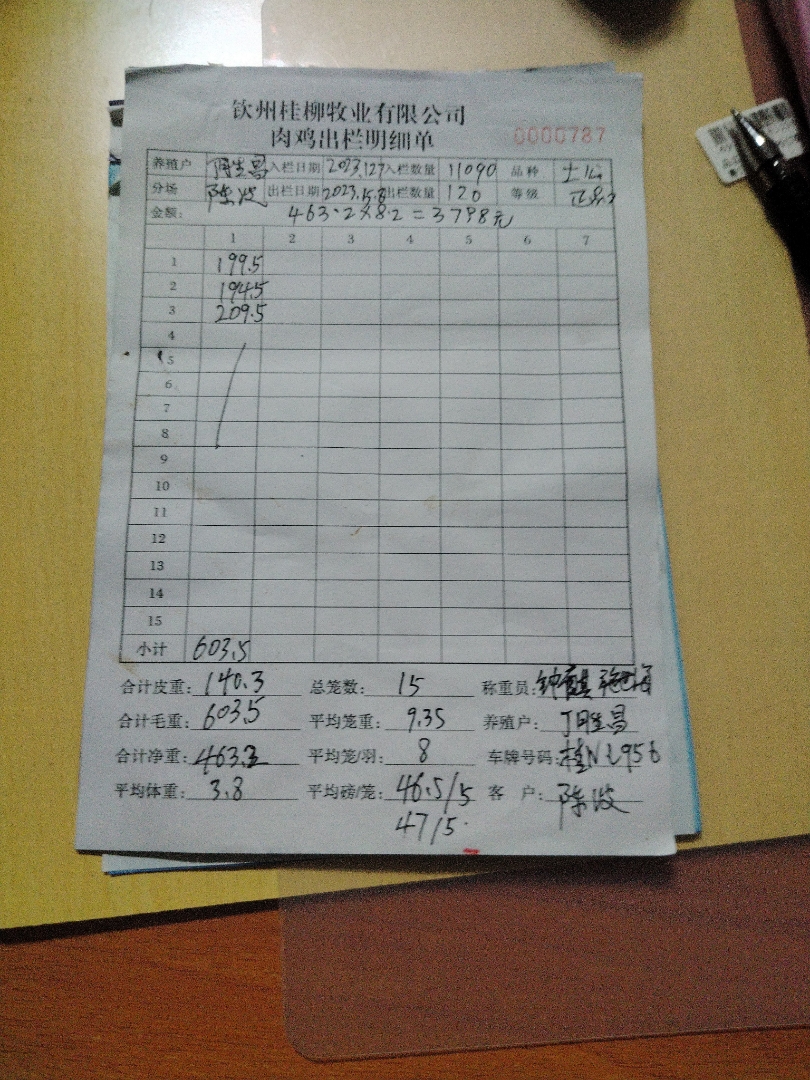 钦州桂柳牧业有限公司
肉鸡出栏明细单 0000787
养殖户 入栏日期 2023.1.27 入栏数量 11090 品种 土公
分场 陈波 出栏日期 2023.5.8 出栏数量 120 等级 正品
金额: 463.2×8.2=3798元
1 2 3 4 5 6 7
1 199.5
2 194.5
3 209.5
4
5
6
7
8
9
10
11
12
13
14
15
小计 603.5
合计皮重: 140.3 总笼数: 15 称重员:
合计毛重: 603.5 平均笼重: 9.35 养殖户:
合计净重: 463.2 平均笼/羽: 8 车牌号码: 桂N L956
平均体重: 3.8 平均磅/笼: 46.5/5 客 户: 陈波
47/5